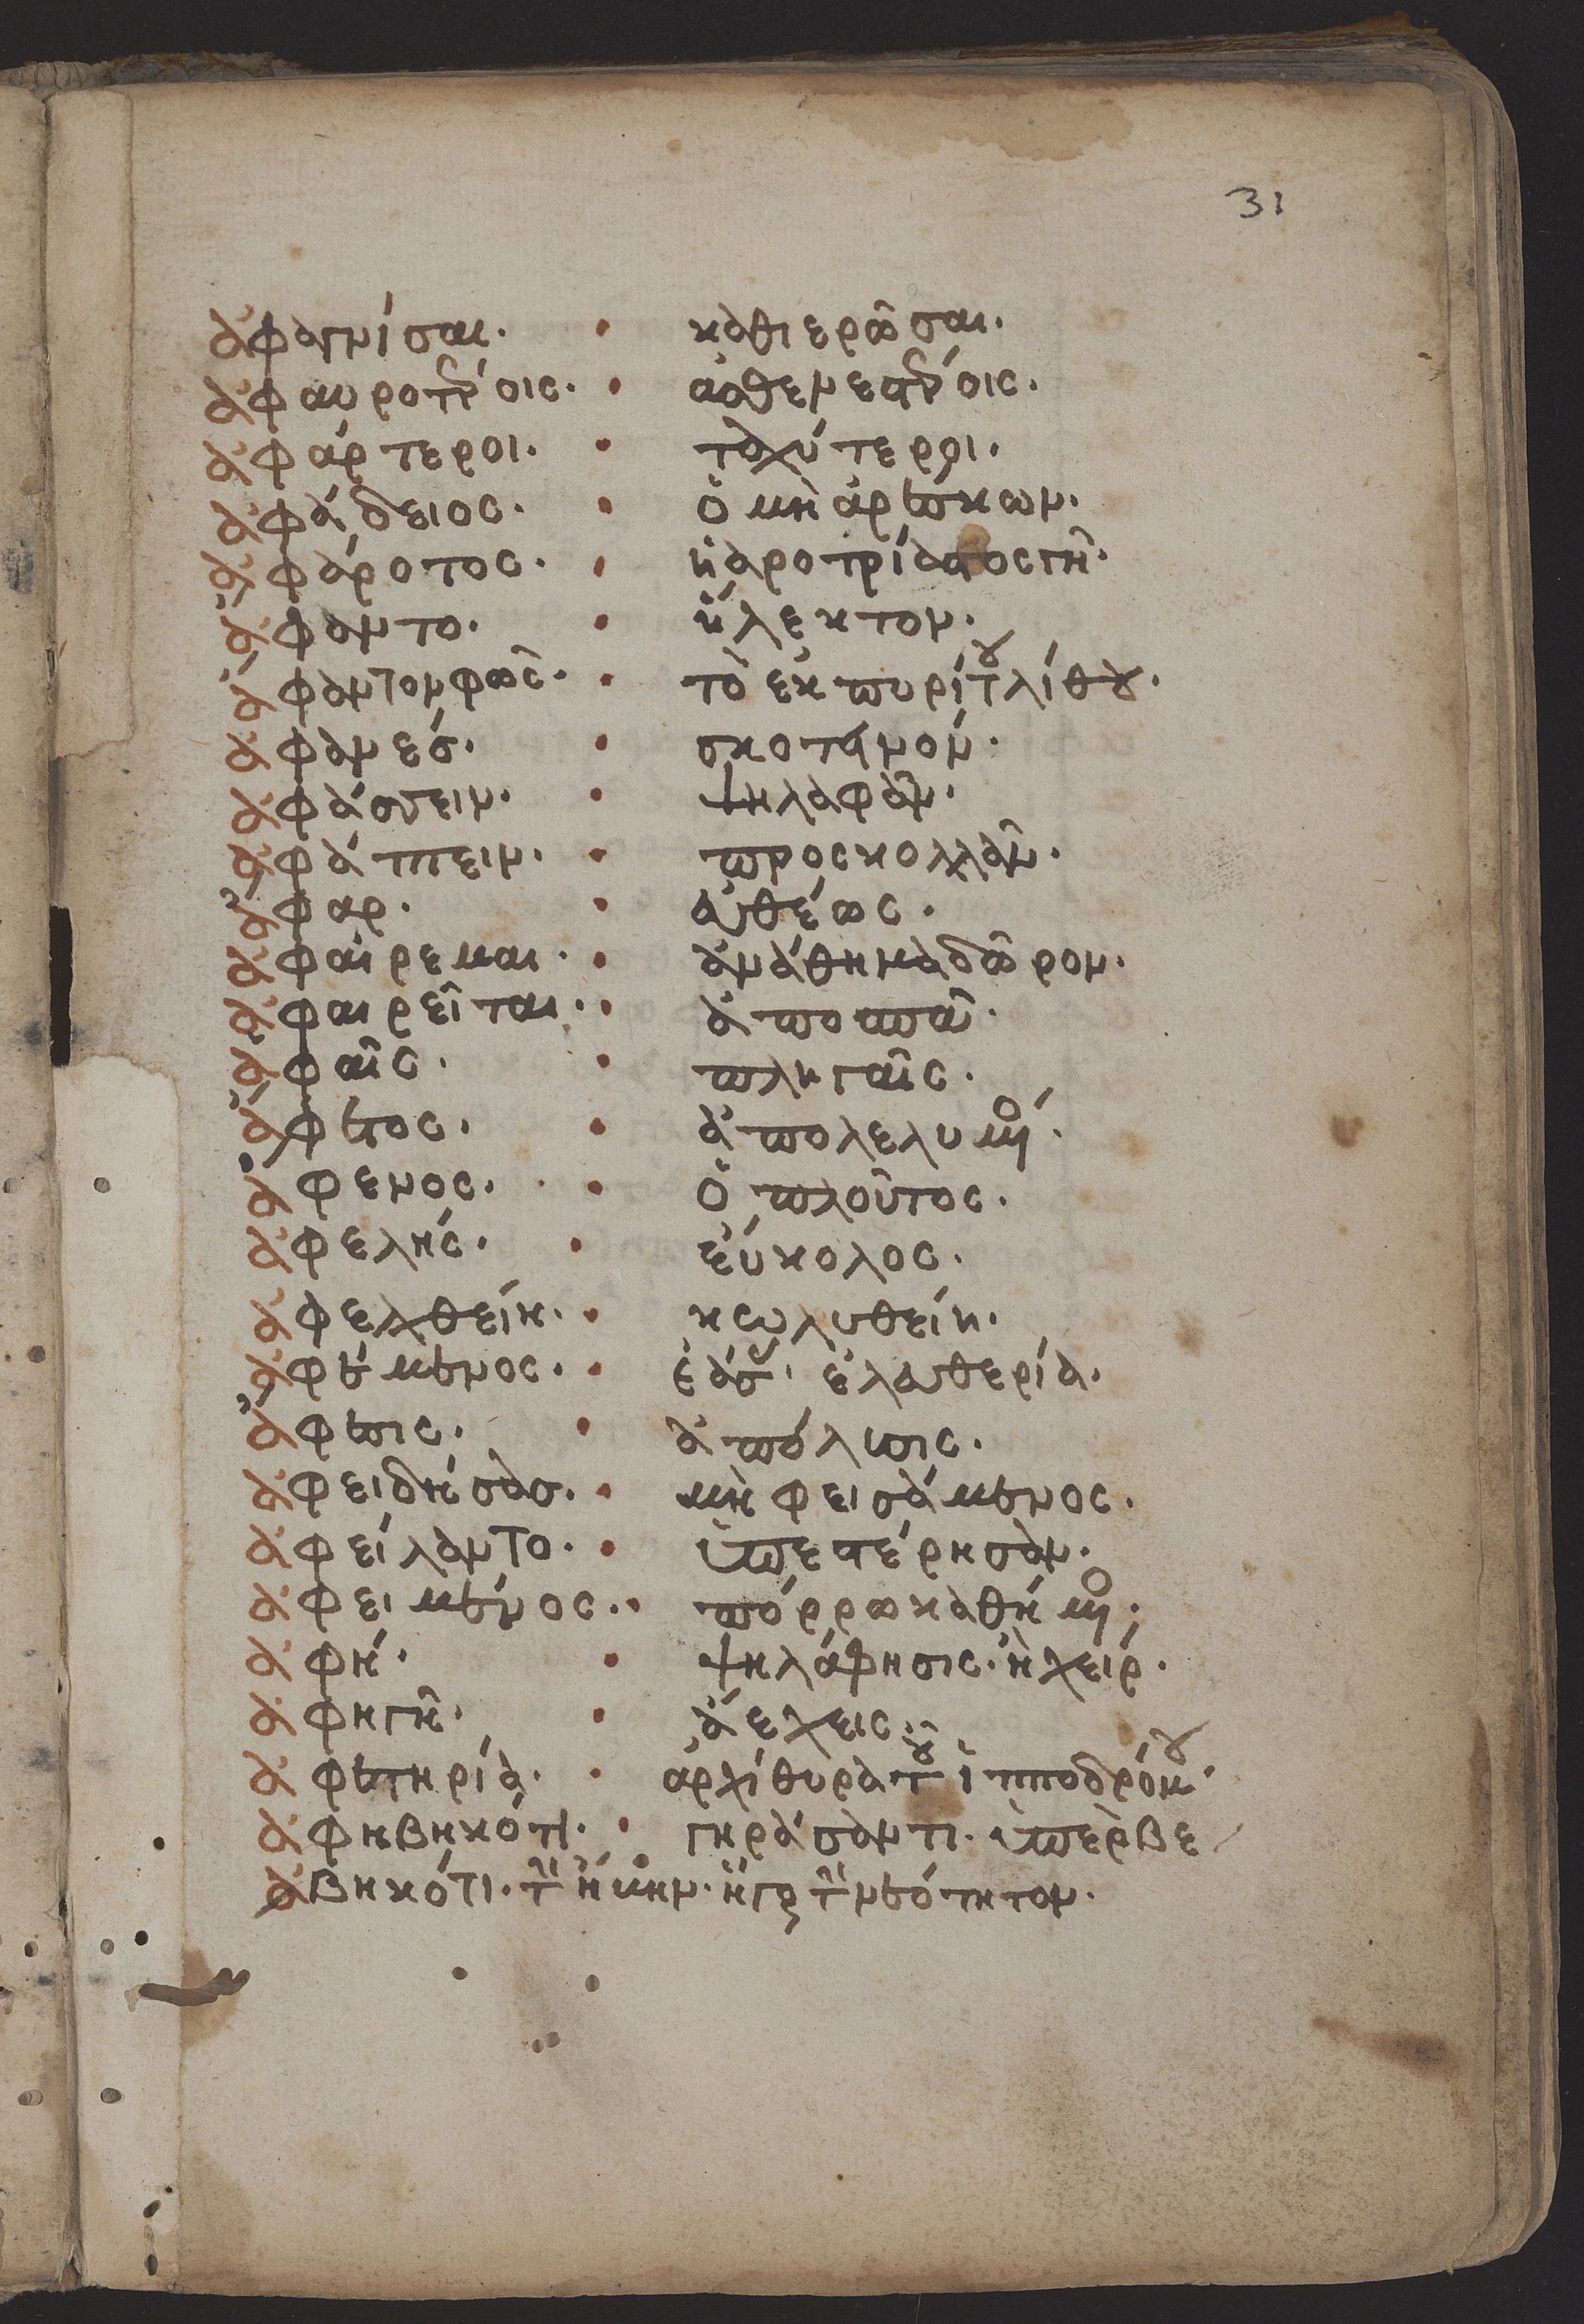 31
ἀφαγνίσαι. · καθιερῶσαι.
ἀφαυροτέροις. · ἀσθενεστέροις.
ἀφάρτεροι. · ταχύτεροι.
ἀφάδειος. · ὁ μὴ ἀρέσκων.
ἀφάροτος. · ἡ ἀροτρίαστος γῆ.
ἄφαντο. · ἥλεκτον.
ἄφαντον φῶς. · τὸ ἐκ πυρίτου λίθου.
ἀφανές. · σκοτεινόν.
ἀφάσσειν. · ψηλαφᾶν.
ἀφάπτειν. · προσκολλᾶν.
ἄφαρ. · εὐθέως.
ἀφαίρεμαι. · ἀνάθημα δῶρον.
ἀφαιρεῖται. · ἀποσπᾶ.
ἀφαῖς. · πληγαῖς.
ἄφετος. · ἀπολελυμένος.
ἄφενος. · ὁ πλοῦτος.
ἀφελής. · εὔκολος.
ἀφελχθείη. · κωλυθείη.
ἀφέμενος. · ἐάσας. ἐλευθερία.
ἄφεσις. · ἀπόλυσις.
ἀφειδήσας. · μὴ φεισάμενος.
ἀφείλαντο. · ὑπεστέρησαν.
ἀφειμένος. · πόρρω καθήμενος.
ἀφή. · ψηλάφησις. ἢ χείρ.
ἀφηγῆ.
ἀφετηρία. · ἀρχίθυρα τοῦ ἱπποδρόμου.
ἀφηβηκότι. · γηράσαντι. ὑπὲρ βε
βηκότι. τὴν